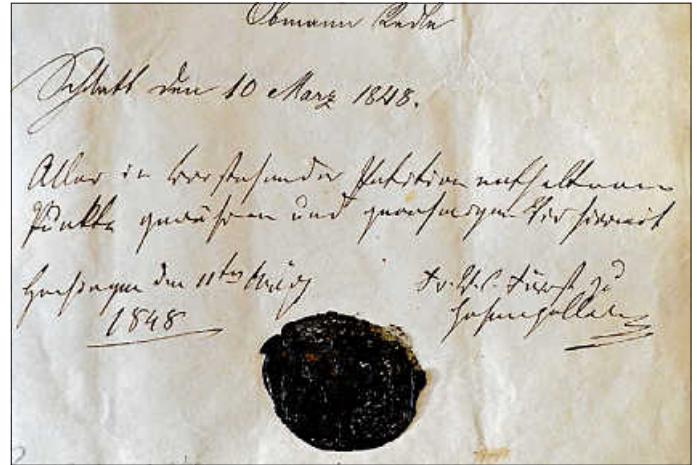 Obmann Redle
Schlatt den 10 Marz 1848.
Alle in vorstehender Petition enthaltenen
Punkte gewähren und genehmigen Wir hiermit
Hechingen den 11ten März
1848
Fürst zu
Hohenzollern